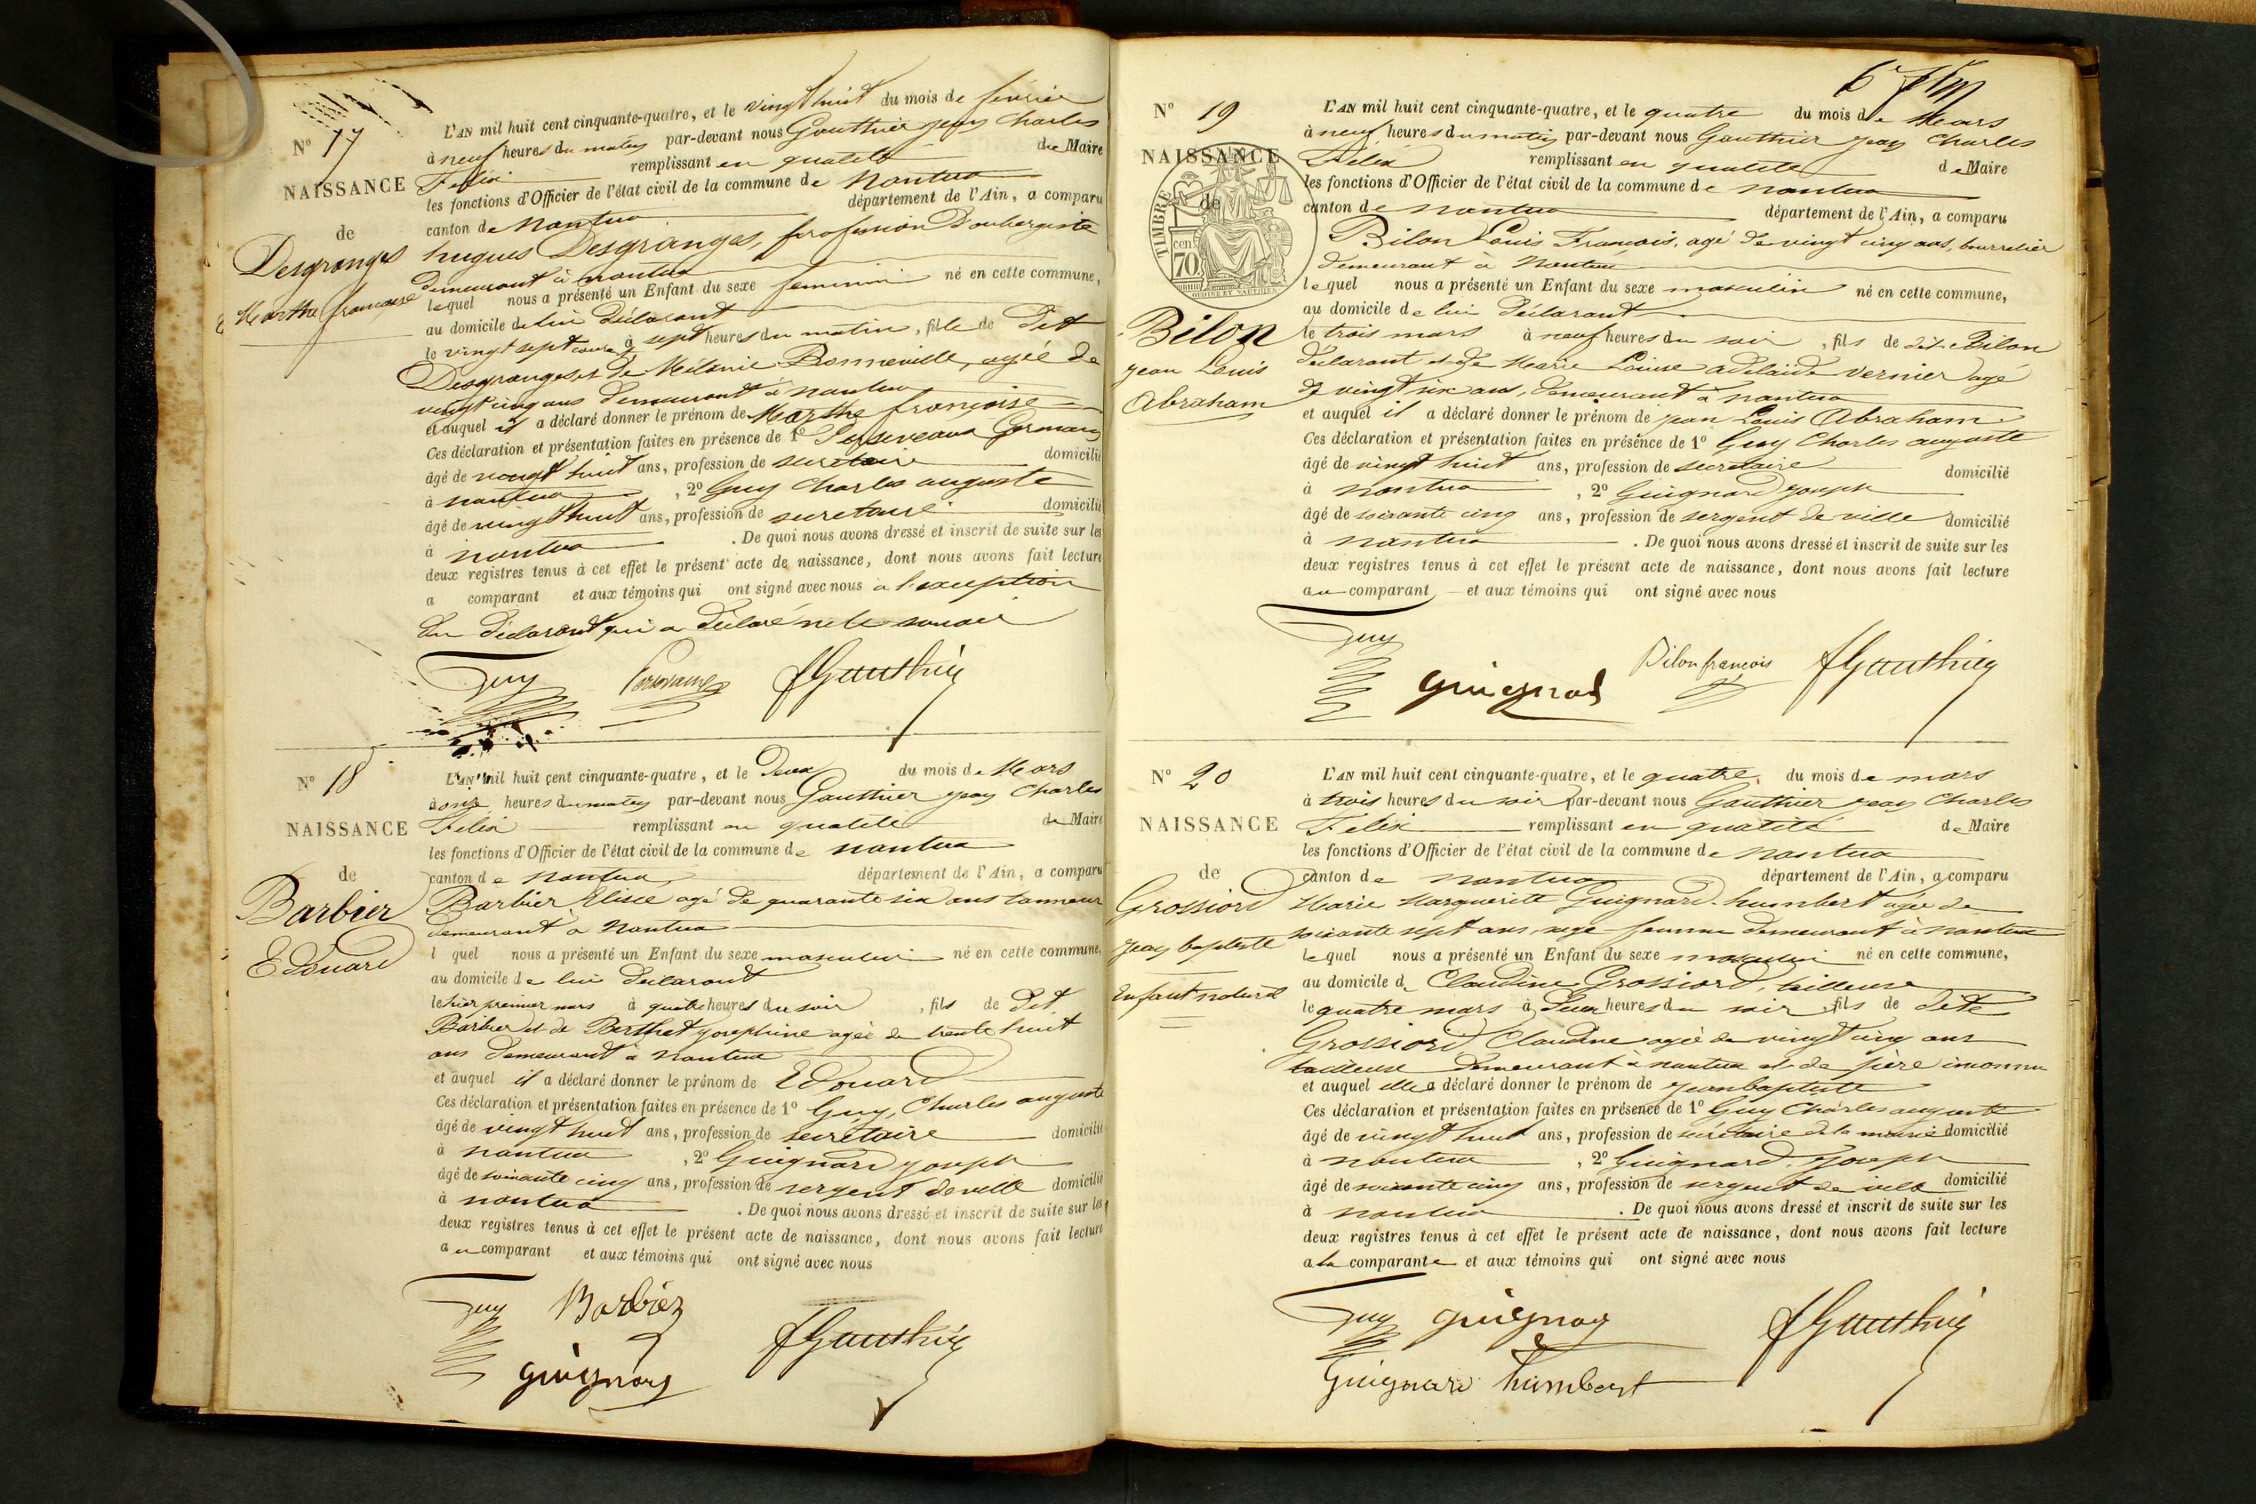 N° 17
NAISSANCE
de
Desgranges
Marthe françoise
L'AN mil huit cent cinquante-quatre, et le vingt huit du mois de février
à neuf heures du matin par-devant nous Gauthier jean Charles
Felix remplissant en qualité de Maire
les fonctions d'Officier de l'état civil de la commune de nantua
canton de nantua département de l'Ain, a comparu
hugues Desgranges, profession d'aubergiste
demeurant à nantua
lequel nous a présenté un Enfant du sexe feminin né en cette commune,
au domicile de lui déclarant
le vingt sept courant à sept heures du matin, fille de dit
Desgranges et de Mélanie Bonneville, agée de
vingt cinq ans demeurant à nantua
et auquel il a déclaré donner le prénom de Marthe françoise
Ces déclaration et présentation faites en présence de 1° Germain
âgé de vingt huit ans, profession de secretaire domicilié
à nantua, 2° Guy Charles auguste
âgé de vingt huit ans, profession de secretaire domicilié
à nantua. De quoi nous avons dressé et inscrit de suite sur les
deux registres tenus à cet effet le présent acte de naissance, dont nous avons fait lecture
a comparant et aux témoins qui ont signé avec nous à l'exception
du déclarant qui a déclaré ne le savoir
Guy fGauthier
N° 18
NAISSANCE
de
Barbier
Edouard
L'AN mil huit cent cinquante-quatre, et le deux du mois de Mars
à onze heures du matin par-devant nous Gauthier jean Charles
Felix remplissant en qualité de Maire
les fonctions d'Officier de l'état civil de la commune de nantua
canton de nantua département de l'Ain, a comparu
Barbier Elisée agé de quarante six ans tanneur
demeurant à nantua
l quel nous a présenté un Enfant du sexe masculin né en cette commune,
au domicile de lui déclarant
le hier premier mars à quatre heures du soir, fils de dit
Barbier et de Berthet josephine agée de trente huit
ans demeurant à nantua
et auquel il a déclaré donner le prénom de Edouard
Ces déclaration et présentation faites en présence de 1° Guy, Charles auguste
âgé de vingt huit ans, profession de secrétaire domicilié
à nantua, 2° Guignard joseph
âgé de soixante cinq ans, profession de sergent de ville domicilié
à nantua. De quoi nous avons dressé et inscrit de suite sur les
deux registres tenus à cet effet le présent acte de naissance, dont nous avons fait lecture
au comparant et aux témoins qui ont signé avec nous
Guy Barbier
guignard fGauthier
6
N° 19
NAISSANCE
de
TIMBRE
cen
70
Bilon
jean Louis
Abraham
L'AN mil huit cent cinquante-quatre, et le quatre du mois de Mars
à neuf heures du matin par-devant nous Gauthier jean Charles
Félix remplissant en qualité de Maire
les fonctions d'Officier de l'état civil de la commune de nantua
canton de nantua département de l'Ain, a comparu
Bilon Louis François, agé de vingt cinq ans, bourrelier
demeurant à Nantua
lequel nous a présenté un Enfant du sexe masculin né en cette commune,
au domicile de lui déclarant
le trois mars à neuf heures du soir, fils de dit Bilon
déclarant et de Marie Louise adelaïde Vernier agé
de vingt six ans, demeurant à nantua
et auquel il a déclaré donner le prénom de jean Louis Abraham
Ces déclaration et présentation faites en présence de 1° Guy Charles auguste
âgé de vingt huit ans, profession de secrétaire domicilié
à nantua, 2° Guignard joseph
âgé de soixante cinq ans, profession de sergent de ville domicilié
à nantua. De quoi nous avons dressé et inscrit de suite sur les
deux registres tenus à cet effet le présent acte de naissance, dont nous avons fait lecture
au comparant et aux témoins qui ont signé avec nous
Guy guignard Bilon françois fGauthier
N° 20
NAISSANCE
de
Grossiord
jean baptiste
Enfant naturel
L'AN mil huit cent cinquante-quatre, et le quatre du mois de mars
à trois heures du soir par-devant nous Gauthier jean Charles
Felix remplissant en qualité de Maire
les fonctions d'Officier de l'état civil de la commune de nantua
canton de nantua département de l'Ain, a comparu
Marie Marguerite Guignard-humbert agée de
soixante sept ans, sage-femme demeurant à nantua
lequel nous a présenté un Enfant du sexe masculin né en cette commune,
au domicile de Claudine Grossiord, tailleuse
le quatre mars à deux heures du soir, fils de dite
Grossiord Claudine agée de vingt cinq ans
tailleuse demeurant à nantua et de père inconnu
et auquel elle a déclaré donner le prénom de jean baptiste
Ces déclaration et présentation faites en présence de 1° Guy Charles auguste
âgé de vingt huit ans, profession de secrétaire de la mairie domicilié
à nantua, 2° Guignard, joseph
âgé de soixante cinq ans, profession de sergent de ville domicilié
à nantua. De quoi nous avons dressé et inscrit de suite sur les
deux registres tenus à cet effet le présent acte de naissance, dont nous avons fait lecture
a la comparante et aux témoins qui ont signé avec nous
Guy guignard fGauthier
Guignard humbert